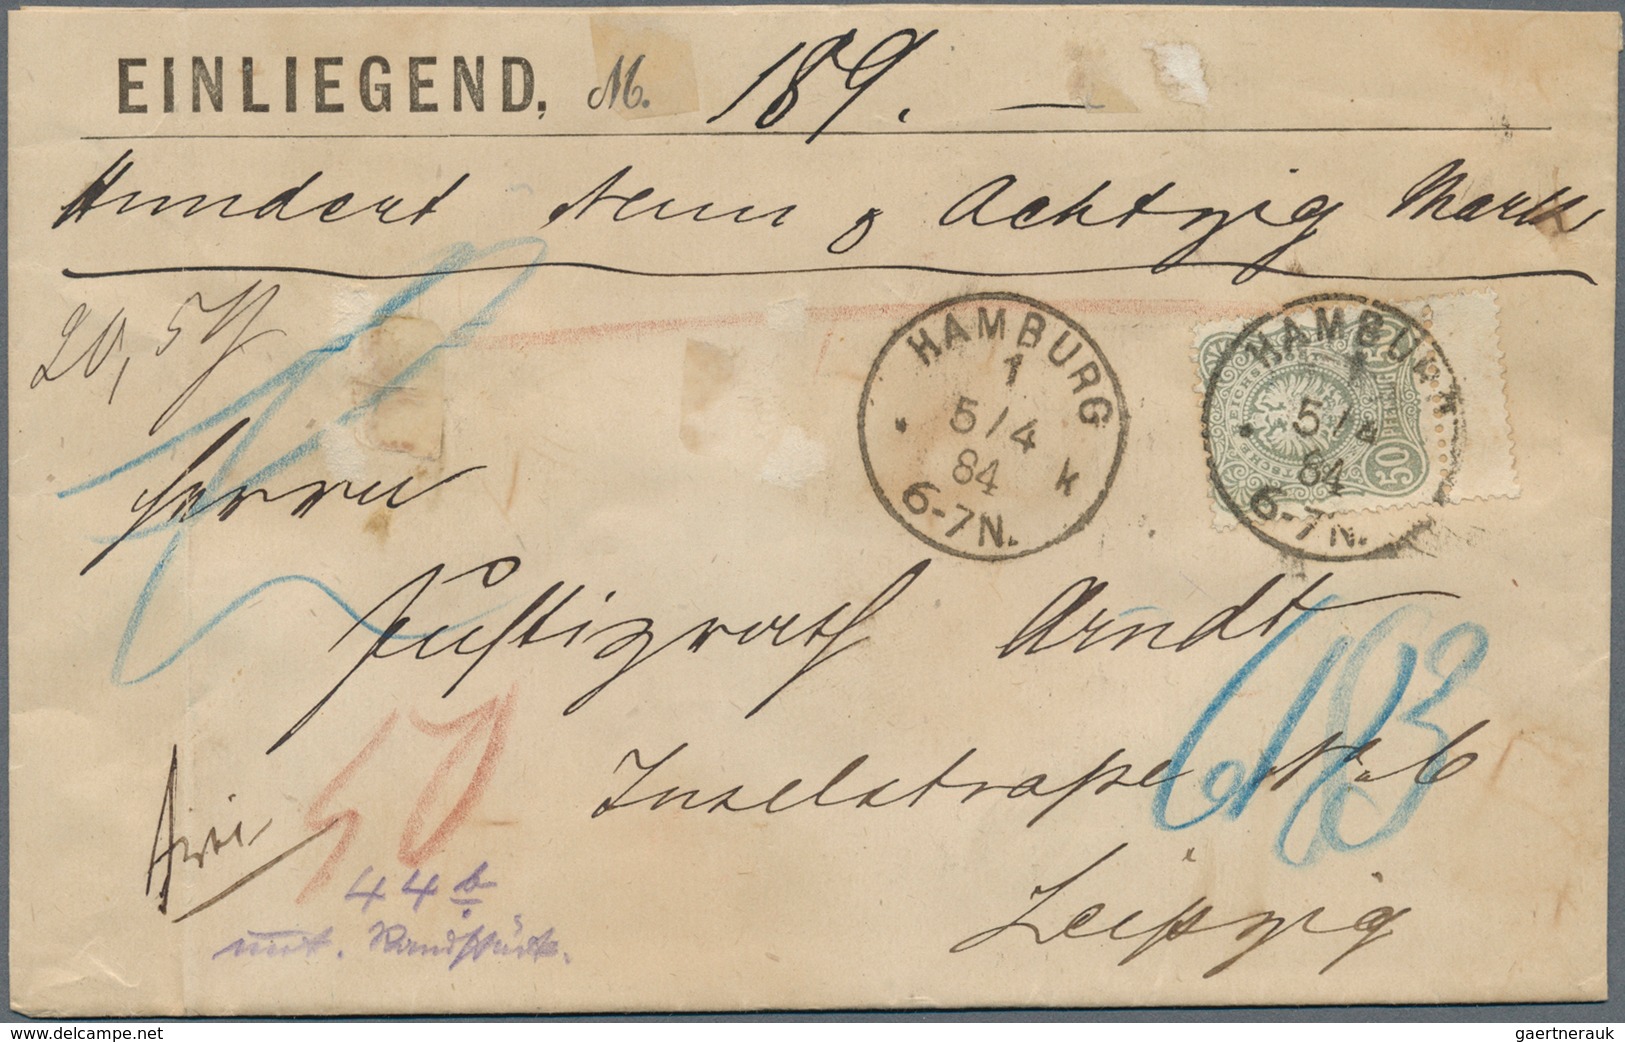 EINLIEGEND, M. 189. —
Hundert Neun & Achtzig Mark
20,5 g
HAMBURG
1
5/4
84
k
6-7N.
HAMBURG
1
5/4
84
6-7N.
50 PFENNIG
Herrn
Justizrath Arndt
Inselstraße No. 6
Leipzig
frei
50
44 b
unt. Randstück.
www.delcampe.net
gaertnerauk